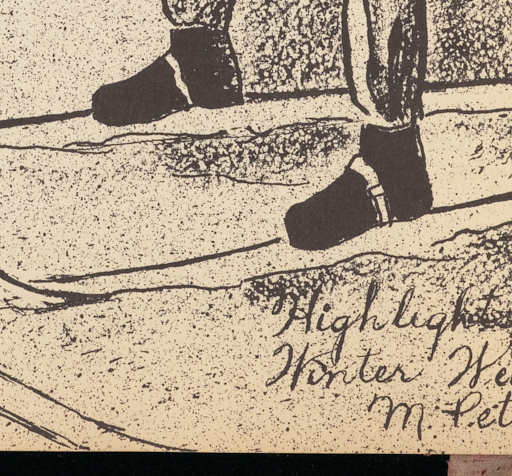 Highlights
Winter We
M Pet